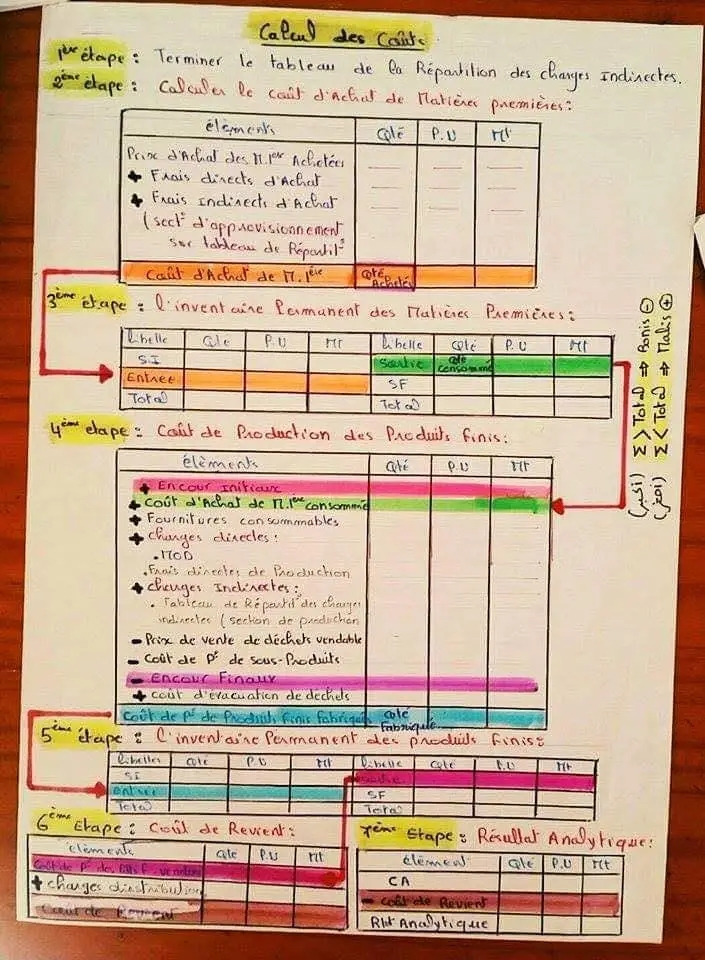 Calcul des Coûts
1ère étape : Terminer le tableau de la Répartition des charges Indirectes.
2ème étape : Calculer le coût d'Achat de Matières premières :
élèments Qté P.U Mt
Prix d'Achat des M.1ères Achetées
+ Frais directs d'Achat
+ Frais Indirects d'Achat
(sect° d'approvisionnement
sur tableau de Répartit°
Coût d'Achat de M.1ère Qté Achetée
3ème étape : l'inventaire Permanent des Matières Premières :
libelle Qte P.U Mt libelle Qté P.U Mt
SI Sortie Qté Consommé
Entrée SF
Total Total
Σ > Total ⇒ Bonis ⊖
Σ < Total ⇒ Malis ⊕
4ème etape : Coût de Production des Produits finis :
élèments Qté P.U Mt
+ Encour Initiaux
+ Coût d'Achat de M.1ère consommé
+ Fournitures consommables
+ charges directes :
. MOD
. Frais directes de Production
+ charges Indirectes :
. Tableau de Répartit° des charges
indirectes (section de production
- Prix de vente de déchets vendable
- Coût de P° de sous-Produits
- Encour Finaux
+ coût d'évacuation de dechets
Coût de P° de Produits Finis fabriqués Qté Fabriquée
5ème étape : l'inventaire Permanent des produits finis :
libelles Qté P.U Mt libelle Qté P.U Mt
SI Sortie
entrée SF
Total Total
6ème Etape : Coût de Revient :
élèments Qté P.U Mt
Coût de P° des
+ charges distribution
Coût de Revient
7ème Etape : Résultat Analytique :
élèment Qté P.U Mt
CA
- coût de Revient
Rlt Analytique